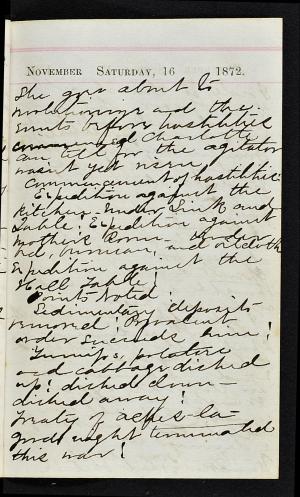 November Saturday, 16 1872.
She goes about to
and the
events before hostilities
Charlotte
can tell for the agitator
wasn't yet risen
Commencement of hostilities
Expedition against the
Kitchen. Under Sink and
Table! Expedition against
Mother's Room — under
bed, bureau, and
Expedition against the
Hall Table!
Points Noted!
Sedimentary deposits
removed!
order succeeds him!
Turnips, potatoes
and cabbage dished
up! dished down —
dished away!
Treaty of
good night terminated
this war!